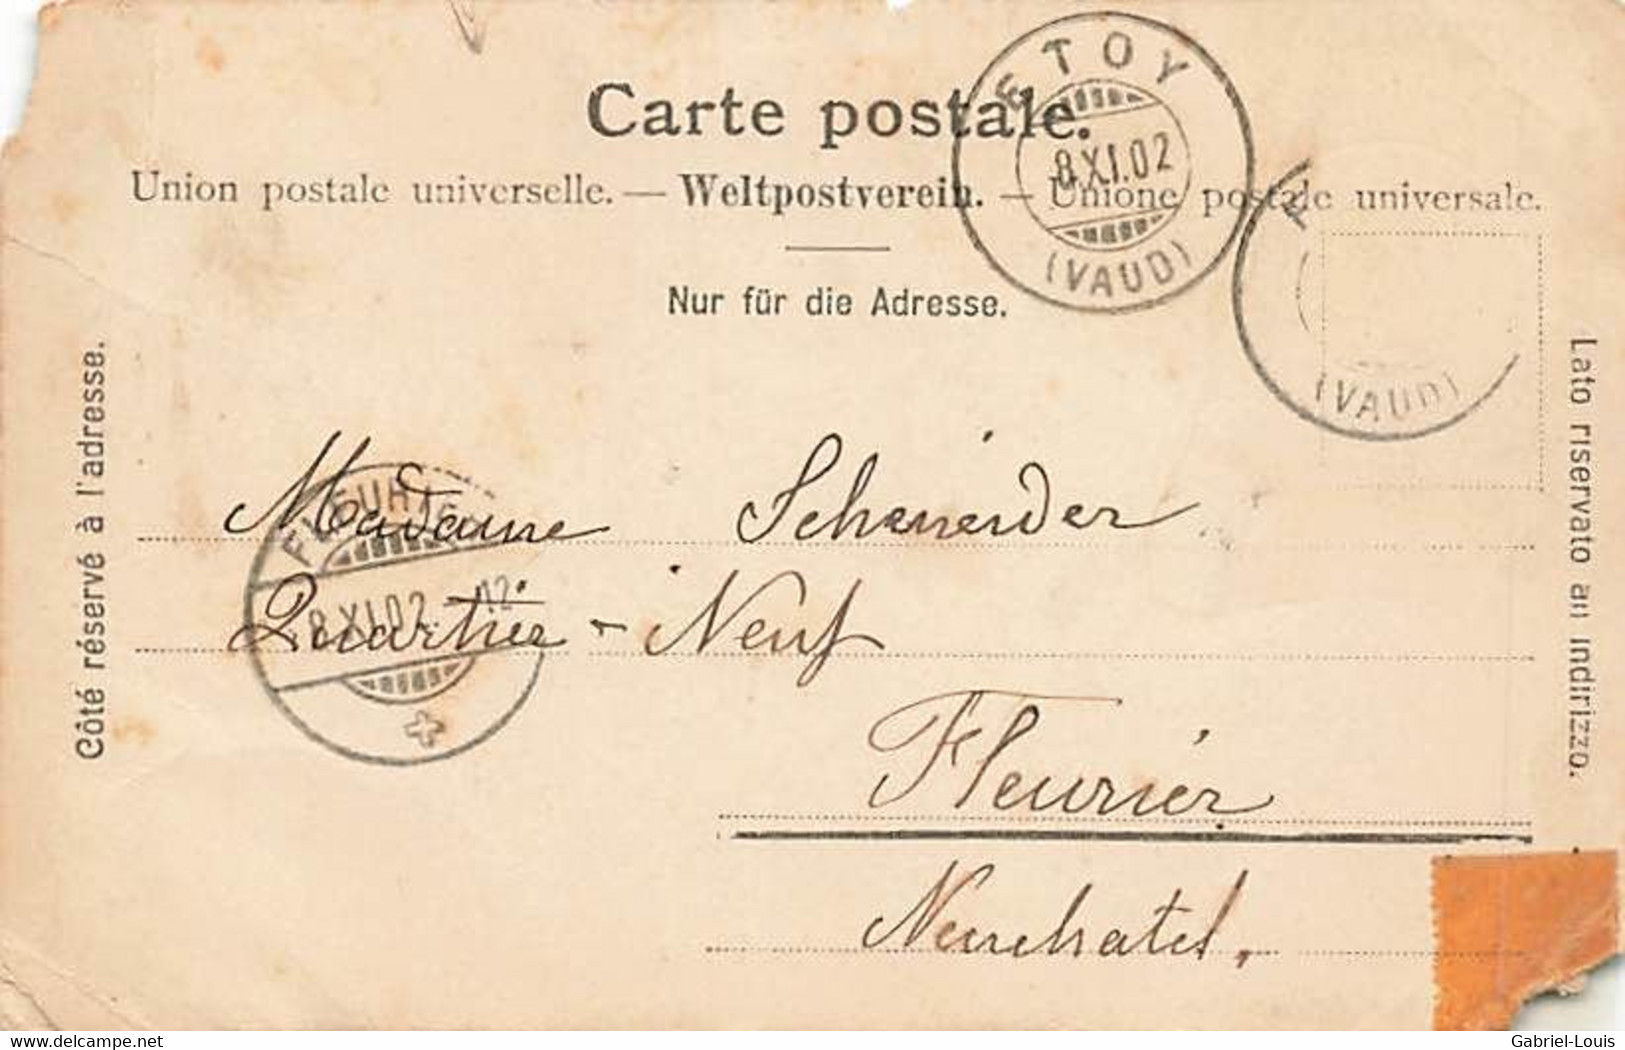 Carte postale.
ETOY
8.XI.02
(VAUD)
Union postale universelle. — Weltpostverein. — Unione postale universale.
Nur für die Adresse.
(VAUD)
Côté réservé à l'adresse.
Lato riservato all indirizzo.
Madame Schneider
Quartier - Neuf
Fleurier
Neuchatel.
FLEURIER
8.XI.02. 12
delcampe.net
Gabriel-Louis